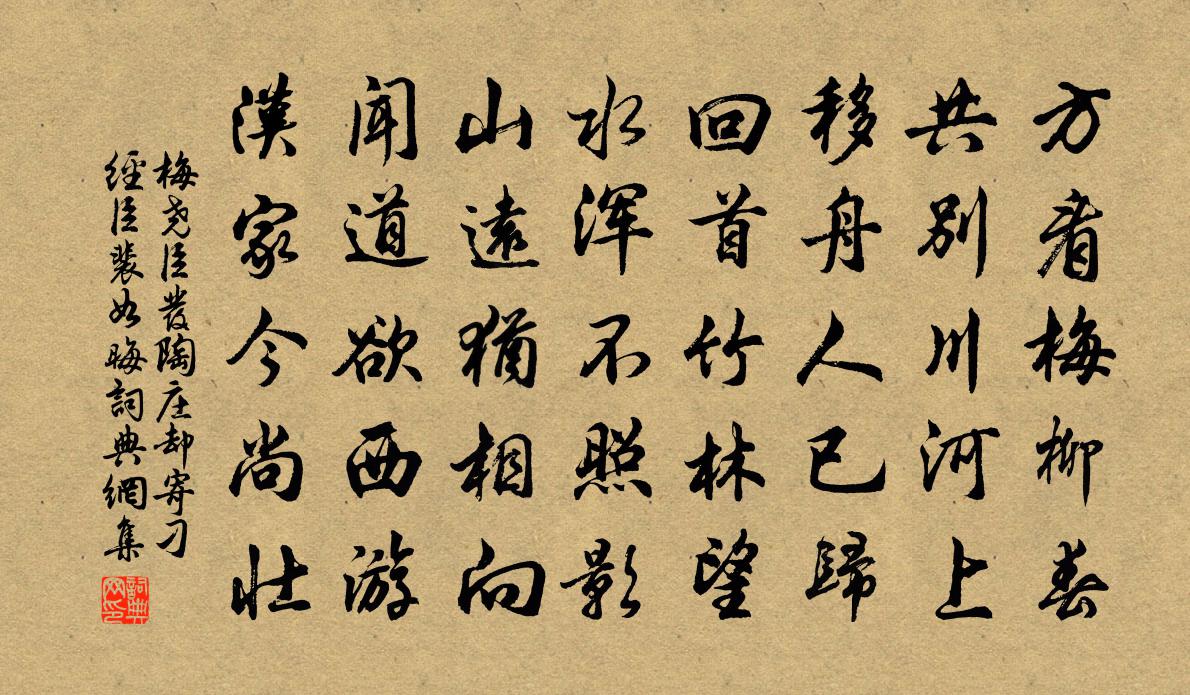 方看梅柳春
共别川河上
移舟人已歸
回首竹林望
水浑不照影
山遠猶相向
闻道欲西游
漢家今尚壯
梅尧臣發陶庄却寄刁
經臣裴如晦詞典網集
詞典网印